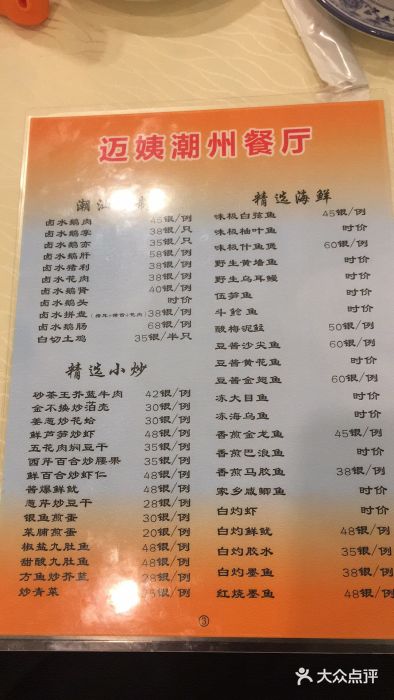 迈姨潮州餐厅
潮汕
卤水鹅肉 45银/例
卤水鹅掌 38银/只
卤水鹅亦 35银/只
卤水鹅肝 58银/例
卤水猪利 38银/例
卤水花肉 38银/例
卤水鹅肾 40银/例
卤水鹅头 时价
卤水拼盘 38银/例
卤水鹅肠 68银/例
白切土鸡 35银/半只
精选小炒
砂茶王芥蓝牛肉 42银/例
金不换炒泊壳 30银/例
姜葱炒花蛤 30银/例
鲜芦笋炒虾 48银/例
五花肉焖豆干 28银/例
西芹百合炒腰果 35银/例
鲜百合炒虾仁 48银/例
酱爆鲜鱿 48银/例
葱芹炒豆干 28银/例
银鱼煎蛋 30银/例
菜脯煎蛋 20银/例
椒盐九肚鱼 48银/例
甜酸九肚鱼 48银/例
方鱼炒芥蓝 28银/例
炒青菜 25银/例
精选海鲜
味极白弦鱼 45银/例
味极柚叶鱼 时价
味极什鱼煲 60银/例
野生黄墙鱼 时价
野生乌耳鳗 时价
伍笋鱼 时价
斗鲳鱼 时价
酸梅泥鯭 50银/例
豆酱沙尖鱼 60银/例
豆酱黄花鱼 时价
豆酱金翅鱼 60银/例
冻大目鱼 时价
冻海乌鱼 时价
香煎金龙鱼 45银/例
香煎巴浪鱼 时价
香煎马胶鱼 38银/例
家乡咸鲫鱼 时价
白灼虾 时价
白灼鲜鱿 48银/例
白灼胶水 35银/例
白灼墨鱼 38银/例
红烧墨鱼 48银/例
③
大众点评